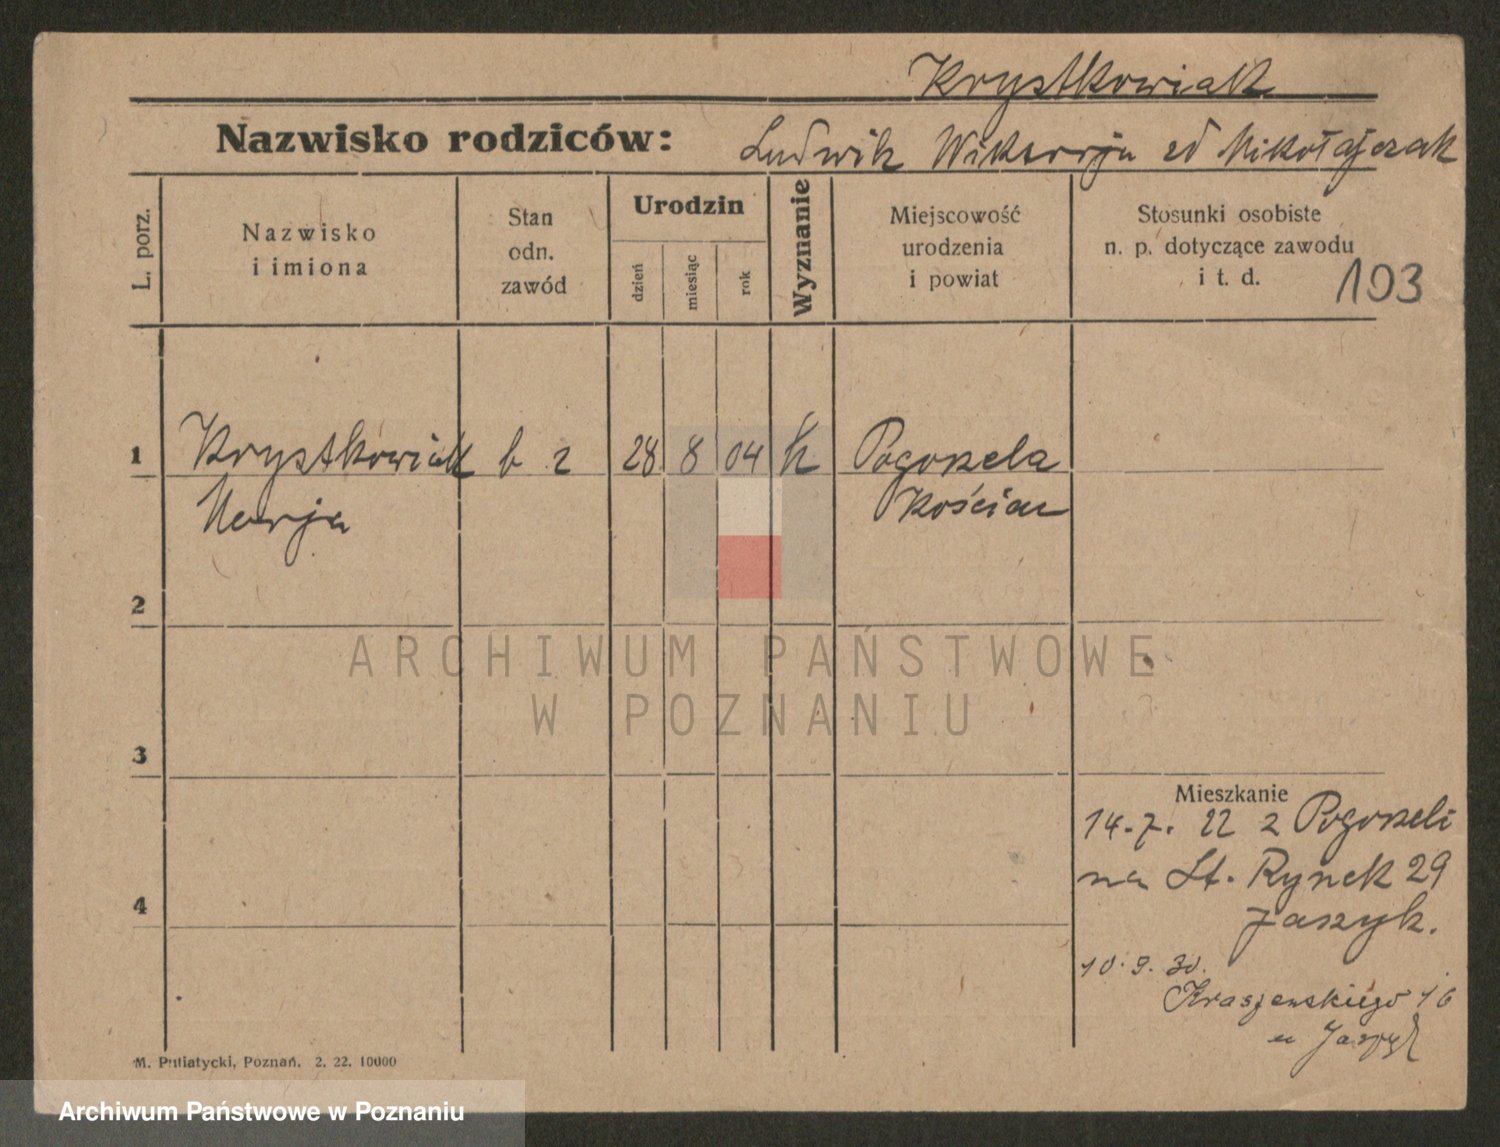 Krystkowiak
Nazwisko rodziców: Ludwik Wiktorja zd Mikołajczak
L. porz.
Nazwisko
i imiona
Stan
odn.
zawód
Urodzin
dzień
miesiąc
rok
Wyznanie
Miejscowość
urodzenia
i powiat
Stosunki osobiste
n. p. dotyczące zawodu
i t. d.
103
1 Krystkowiak b z 28 8 04 k Pogorzela
Marja Kościan
2
3
4
ARCHIWUM PAŃSTWOWE
W POZNANIU
Mieszkanie
14.7. 22 z Pogorzeli
na St. Rynek 29
Jaszyk.
10.9.30.
Kraszewskiego 16
u
M. Putiatycki, Poznań. 2. 22. 10000
Archiwum Państwowe w Poznaniu